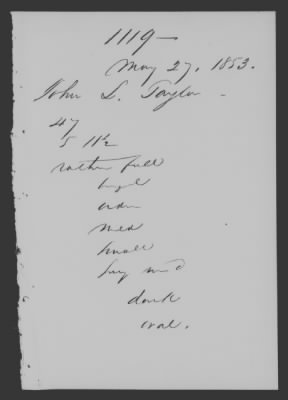 1119 —
May 27, 1853.
John L. Taylor —
47
5 11½
rather full
hazel
med
small
dark
oval.